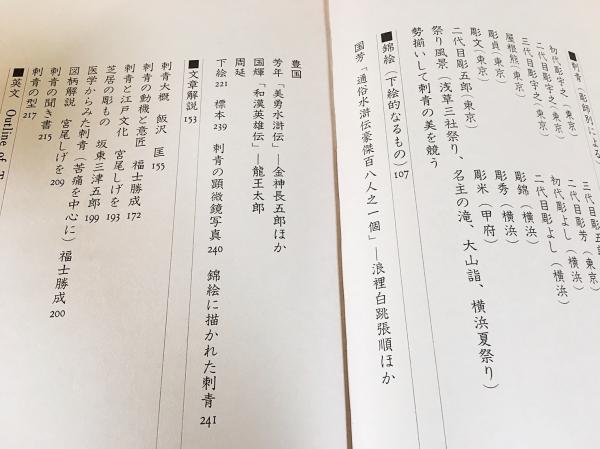 ■刺青(彫師別による
初代彫宇之(東京) 三代目彫五
二代目彫宇之(東京) 三代目彫芳(東京)
三代目彫宇之(東京) 初代彫よし(横浜)
屋根熊(東京) 二代目彫よし(横浜)
彫貞(東京) 彫錦(横浜)
彫文(東京) 彫秀(横浜)
二代目彫五郎(東京) 彫米(甲府)
祭り風景(浅草三社祭り、名主の滝、大山詣、横浜夏祭り)
勢揃いして刺青の美を競う
■錦絵(下絵的なるもの)107
国芳「通俗水滸伝豪傑百八人之一個」—浪裡白跳張順ほか
豊国
芳年「美勇水滸伝」—金神長五郎ほか
国輝「和漢英雄伝」—龍王太郎
周延
下絵221 標本239 刺青の顕微鏡写真240 錦絵に描かれた刺青241
■文章解説153
刺青大概 飯沢匡155
刺青の動機と意匠 福士勝成172
刺青と江戸文化 宮尾しげを193
芝居の彫もの 坂東三津五郎199
医学からみた刺青(苦痛を中心に)福士勝成200
図柄解説 宮尾しげを209
刺青の聞き書215
刺青の型217
■英文 Outline of